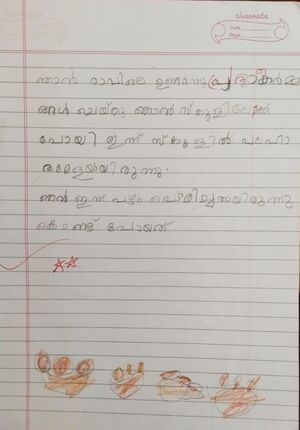 classmate
Date
Page
ഞാൻ രാവിലെ ഉണർന്നു പ്രഭാതകർമ്മ
ങ്ങൾ ചെയ്തു ഞാൻ സ്കൂളിലേക്ക്
പോയി ഇന്ന് സ്കൂളിൽ പലഹാ
രമേളയായിരുന്നു.
ഞൻ ഇന്ന് പഴം
കൊണ്ട് പോയത്